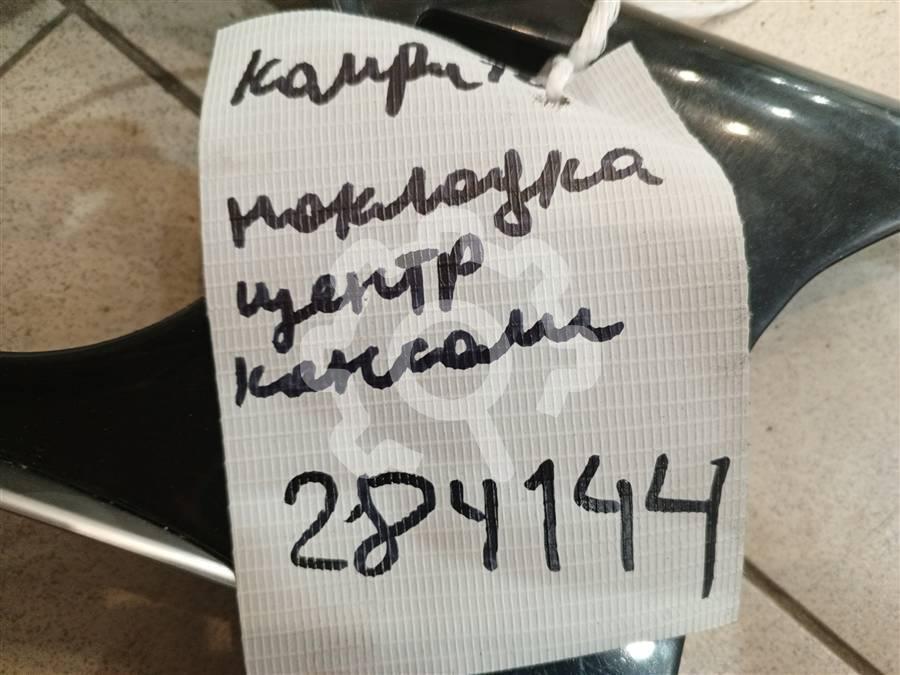 накладка
центр
консоли
284144